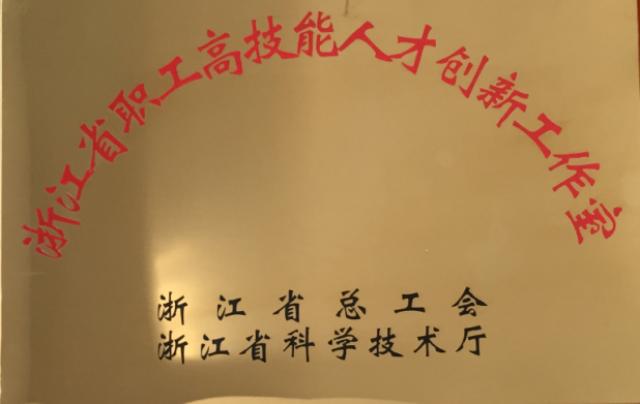 浙江省职工高技能人才创新工作室
浙江省总工会
浙江省科学技术厅